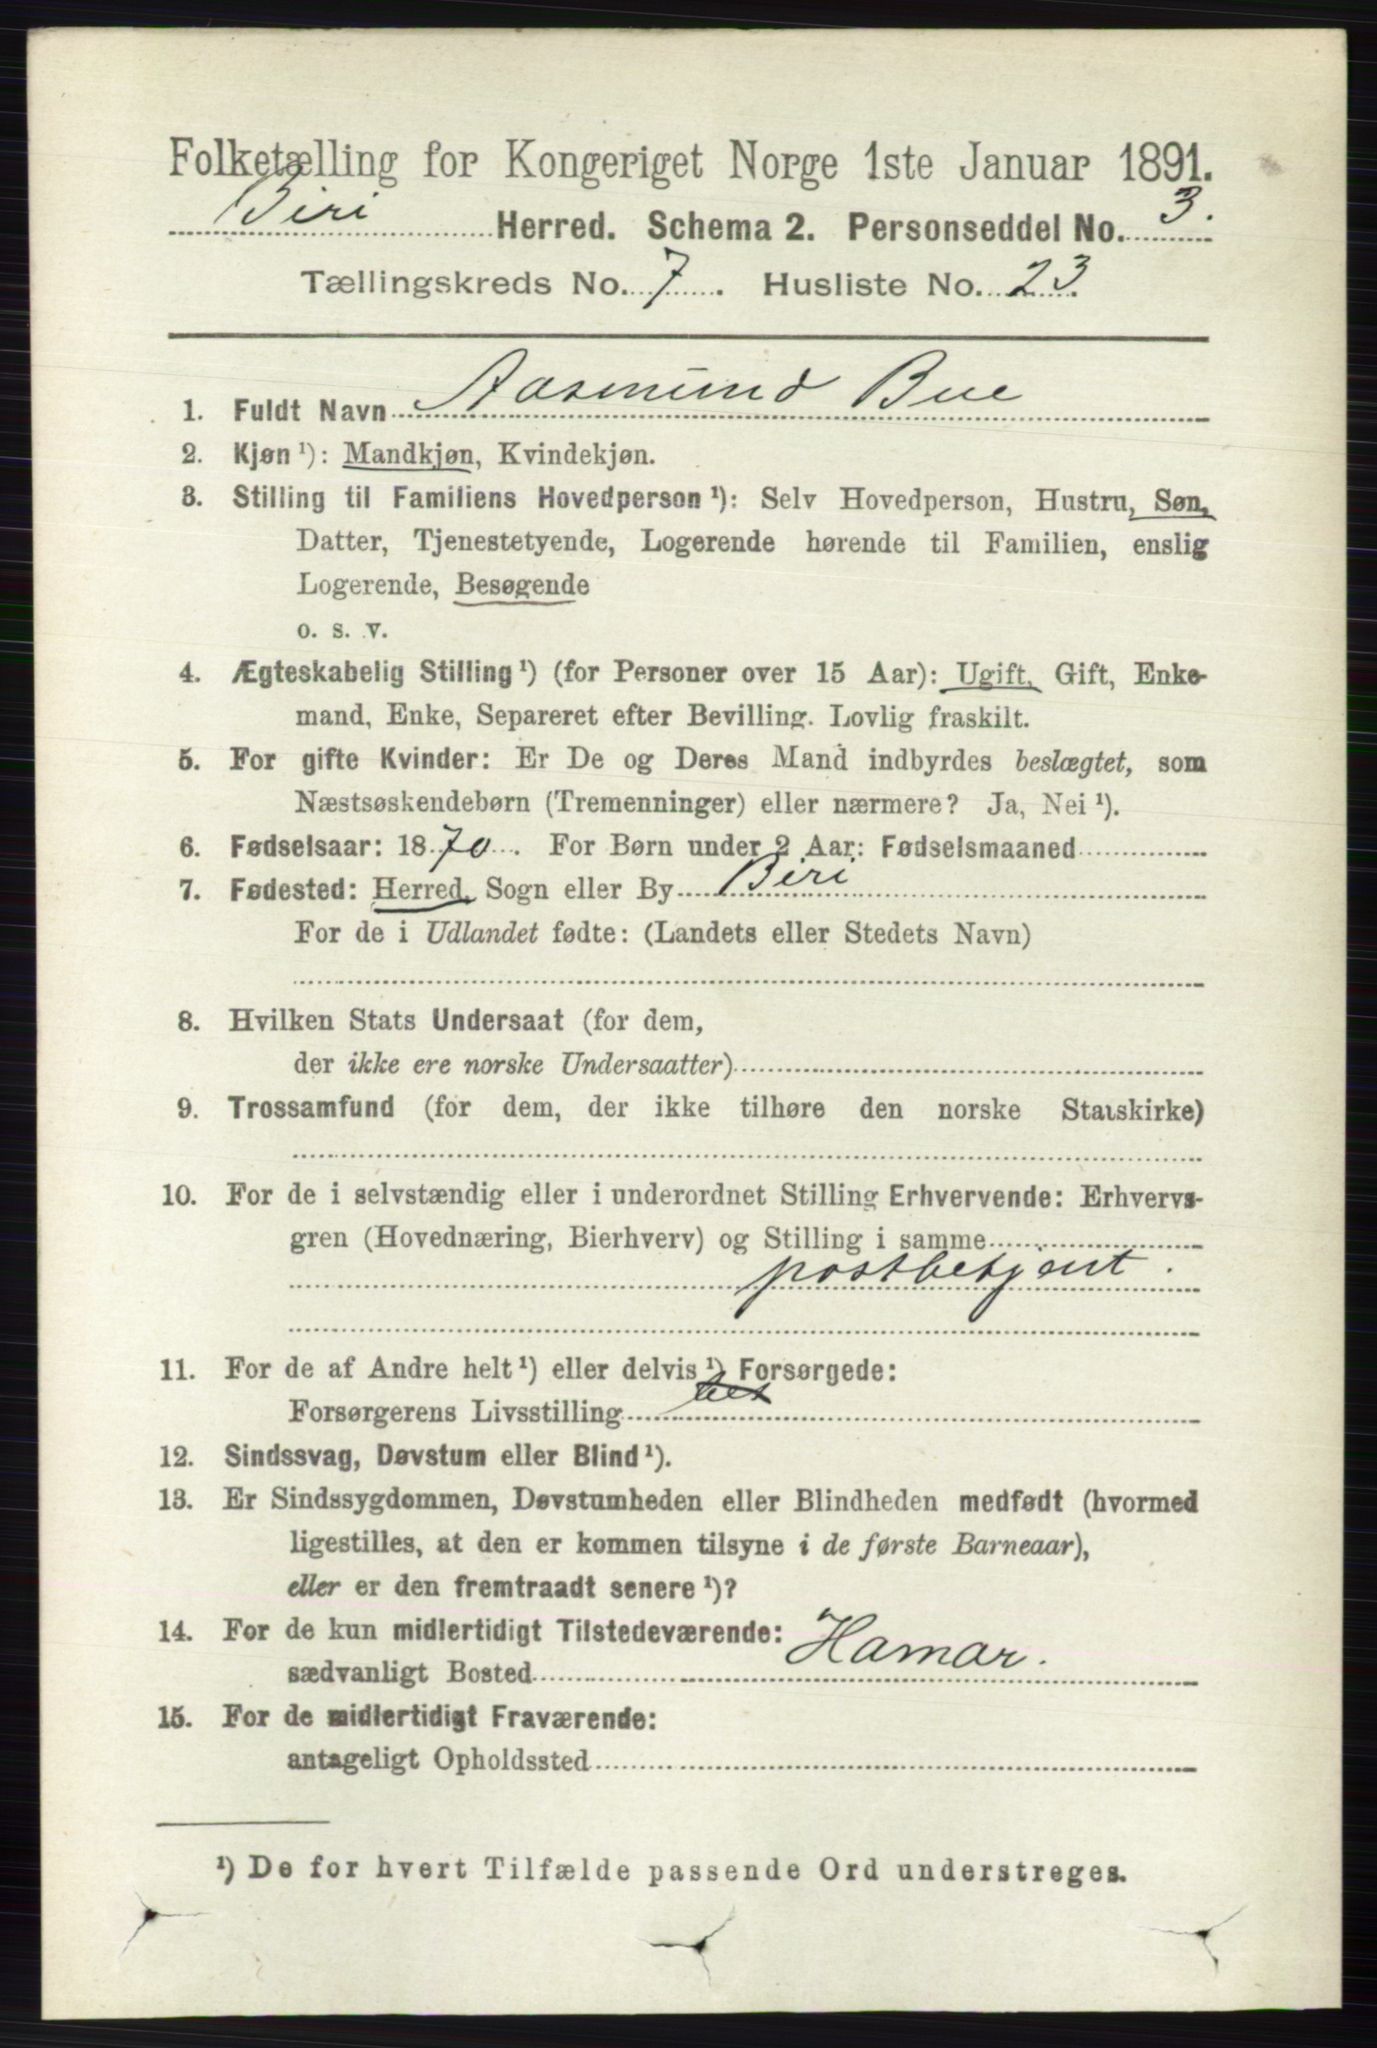 Folketælling for Kongeriget Norge 1ste Januar 1891.
Biri Herred. Schema 2. Personseddel No. 3.
Tællingskreds No. 7. Husliste No. 23.
1. Fuldt Navn Aasmund Bue
2. Kjøn ¹): Mandkjøn, Kvindekjøn.
3. Stilling til Familiens Hovedperson ¹): Selv Hovedperson, Hustru, Søn,
Datter, Tjenestetyende, Logerende hørende til Familien, enslig
Logerende, Besøgende
o. s. v.
4. Ægteskabelig Stilling ¹) (for Personer over 15 Aar): Ugift, Gift, Enke-
mand, Enke, Separeret efter Bevilling. Lovlig fraskilt.
5. For gifte Kvinder: Er De og Deres Mand indbyrdes beslægtet, som
Næstsøskendebørn (Tremenninger) eller nærmere? Ja, Nei ¹).
6. Fødselsaar: 1870. For Børn under 2 Aar: Fødselsmaaned
7. Fødested: Herred, Sogn eller By Biri
For de i Udlandet fødte: (Landets eller Stedets Navn)
8. Hvilken Stats Undersaat (for dem,
der ikke ere norske Undersaatter)
9. Trossamfund (for dem, der ikke tilhøre den norske Statskirke)
10. For de i selvstændig eller i underordnet Stilling Erhvervende: Erhvervs-
gren (Hovednæring, Bierhverv) og Stilling i samme
postbetjent.
11. For de af Andre helt ¹) eller delvis ¹) Forsørgede:
Forsørgerens Livsstilling
12. Sindssvag, Døvstum eller Blind ¹).
13. Er Sindssygdommen, Døvstumheden eller Blindheden medfødt (hvormed
ligestilles, at den er kommen tilsyne i de første Barneaar),
eller er den fremtraadt senere ¹)?
14. For de kun midlertidigt Tilstedeværende:
sædvanligt Bosted Hamar.
15. For de midlertidigt Fraværende:
antageligt Opholdssted
¹) De for hvert Tilfælde passende Ord understreges.